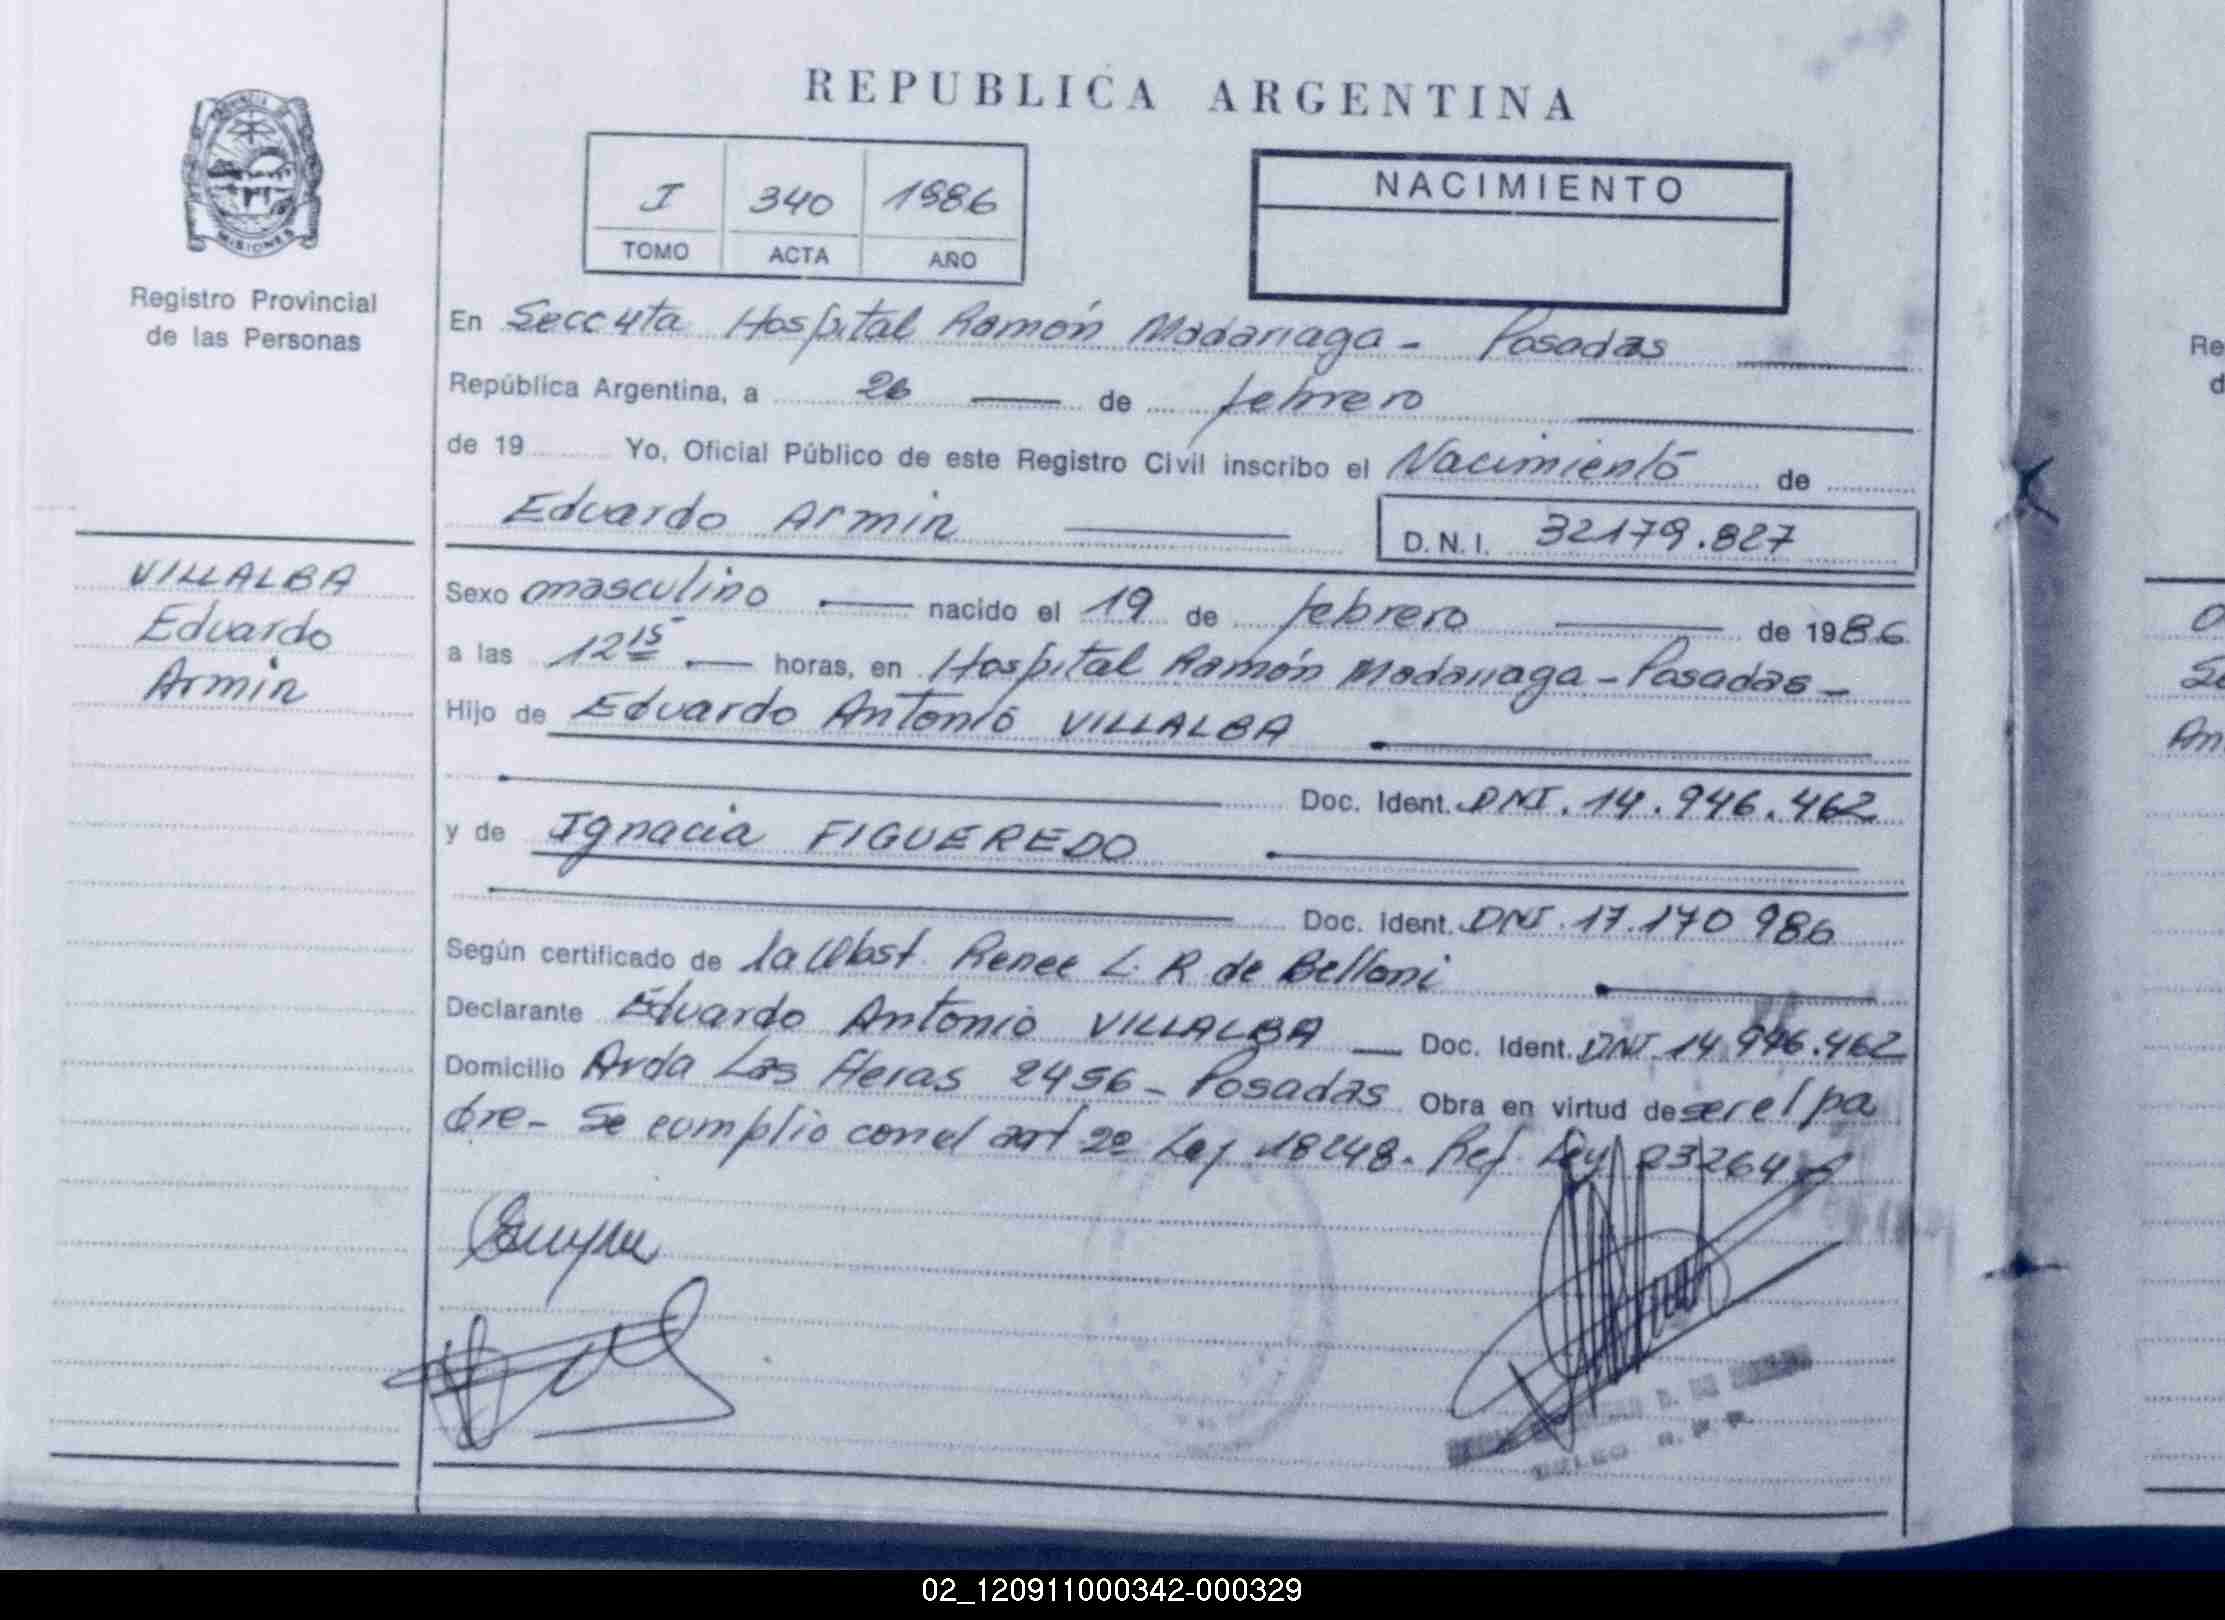 REPUBLICA ARGENTINA
MISIONES
Registro Provincial
de las Personas
I 340 1986
TOMO ACTA AÑO
NACIMIENTO
En Secc 4ta Hospital Ramón Madariaga - Posadas
República Argentina, a 26 de febrero
de 19 Yo, Oficial Público de este Registro Civil inscribo el Nacimiento de
Eduardo Armin
D.N.I. 32179.827
VILLALBA
Eduardo
Armin
Sexo masculino nacido el 19 de febrero de 1986
a las 12 15 horas, en Hospital Ramón Madariaga - Posadas -
Hijo de Eduardo Antonio VILLALBA
Doc. Ident. DNI. 14.946.462
y de Ignacia FIGUEREDO
Doc. Ident. DNI. 17.170 986
Según certificado de la Obst. Renee L. R de Belloni
Declarante Eduardo Antonio VILLALBA Doc. Ident. DNI 14.946.462
Domicilio Avda Las Heras 2456 - Posadas Obra en virtud de ser el pa
dre - Se cumplio con el art 2º Ley 18248. Ref. Ley 23264
02_120911000342-000329